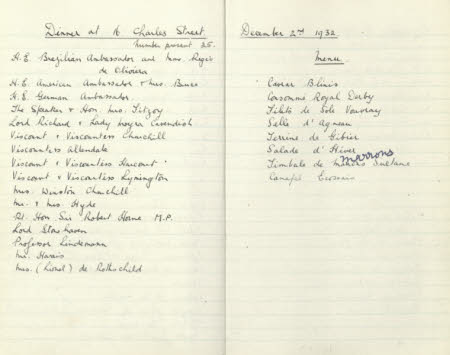 Dinner at 16 Charles Street
number present 25.
H.E. Brazilian Ambassador and Mme. Regis
de Oliviera
H.E. American Ambassador & Mrs.
H.E. German Ambassador
The Speaker & Hon. Mrs. Fitzroy
Lord Richard & Lady Moyra Cavendish
Viscount & Viscountess Churchill
Viscountess Allendale
Viscount & Viscountess Harcourt
Viscount & Viscountess Lymington
Mrs. Winston Churchill
Mr. & Mrs. Hyde
Rt. Hon Sir Robert Horne M.P.
Lord Stonehaven
Professor Lindemann
Mr. Harris
Mrs. (Lionel) de Rothschild
December 2nd 1932
Menu
Caviar Blinis
Consommé Royal Derby
Filets de Sole Vouvray
Selle d'Agneau
Terrine de Gibier
Salade d'Hiver
marrons
Timbale de Sultane
Canapé Ecossais